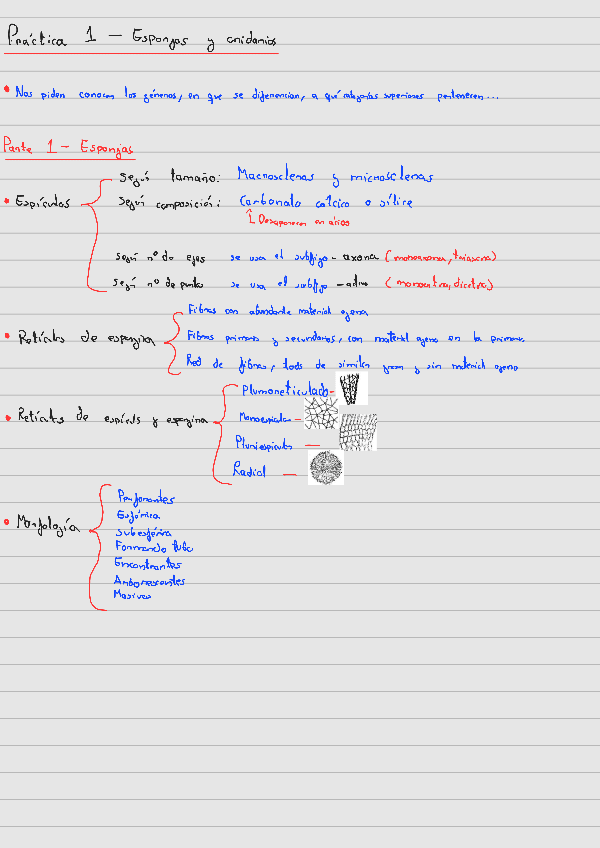 Práctica 1 — Esponjas y cnidarios
• Nos piden conocer los géneros, en que se diferencian, a qué categorías superiores pertenecen...
Parte 1 - Esponjas
• Espículas
Según tamaño: Macroscleras y microscleras
Según composición: Carbonato cálcico o sílice
↳ Desaparecen en ácidos
Según nº de ejes se usa el subfijo - axona (monoaxona, triaxona)
Según nº de puntas se usa el subfijo - actina (monoactina, diactina)
• Retículos de espongina
Fibras con abundante material ajeno
Fibras primarias y secundarias, con material ajeno en la primaria
Red de fibras, todas de similar grosor y sin material ajeno
• Retículos de espículas y espongina
Plumoreticulado -
Monoespicular -
Pluriespicular —
Radial —
• Morfología
Perforantes
Esférica
Subesférica
Formando tubo
Incrustantes
Arborescentes
Masivas